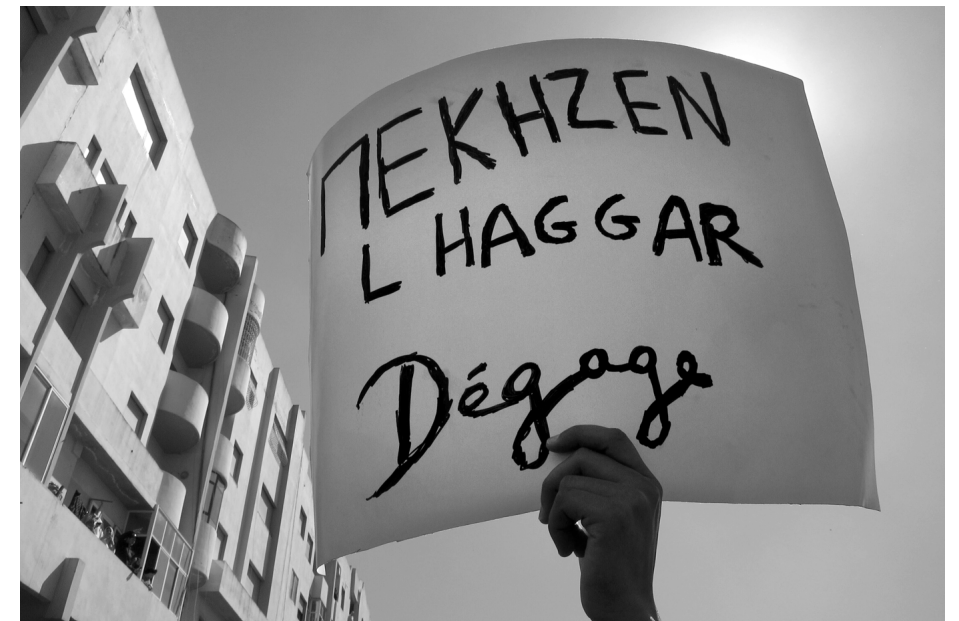 MEKHZEN
L HAGGAR
Dégage